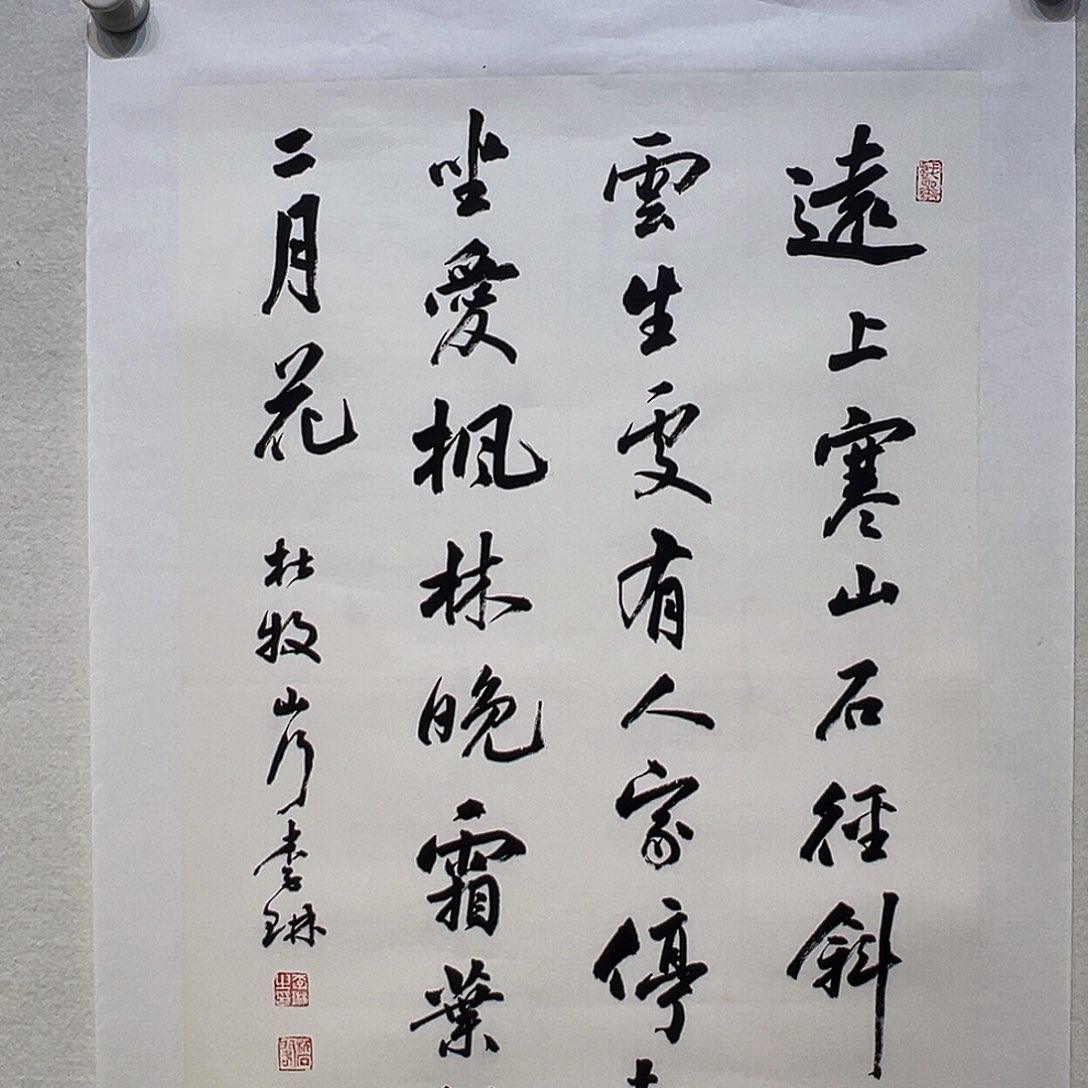 遠上寒山石徑斜
雲生處有人家停
坐愛楓林晚霜葉
二月花
杜牧山行李琳